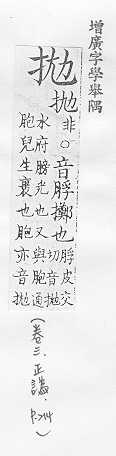 增廣字學舉隅
拋
抛非○音脬擲也脬皮交
切音拋
水府膀光也又與胞通
胞兒生裹也胞亦音拋
(卷三、正譌、P.214)